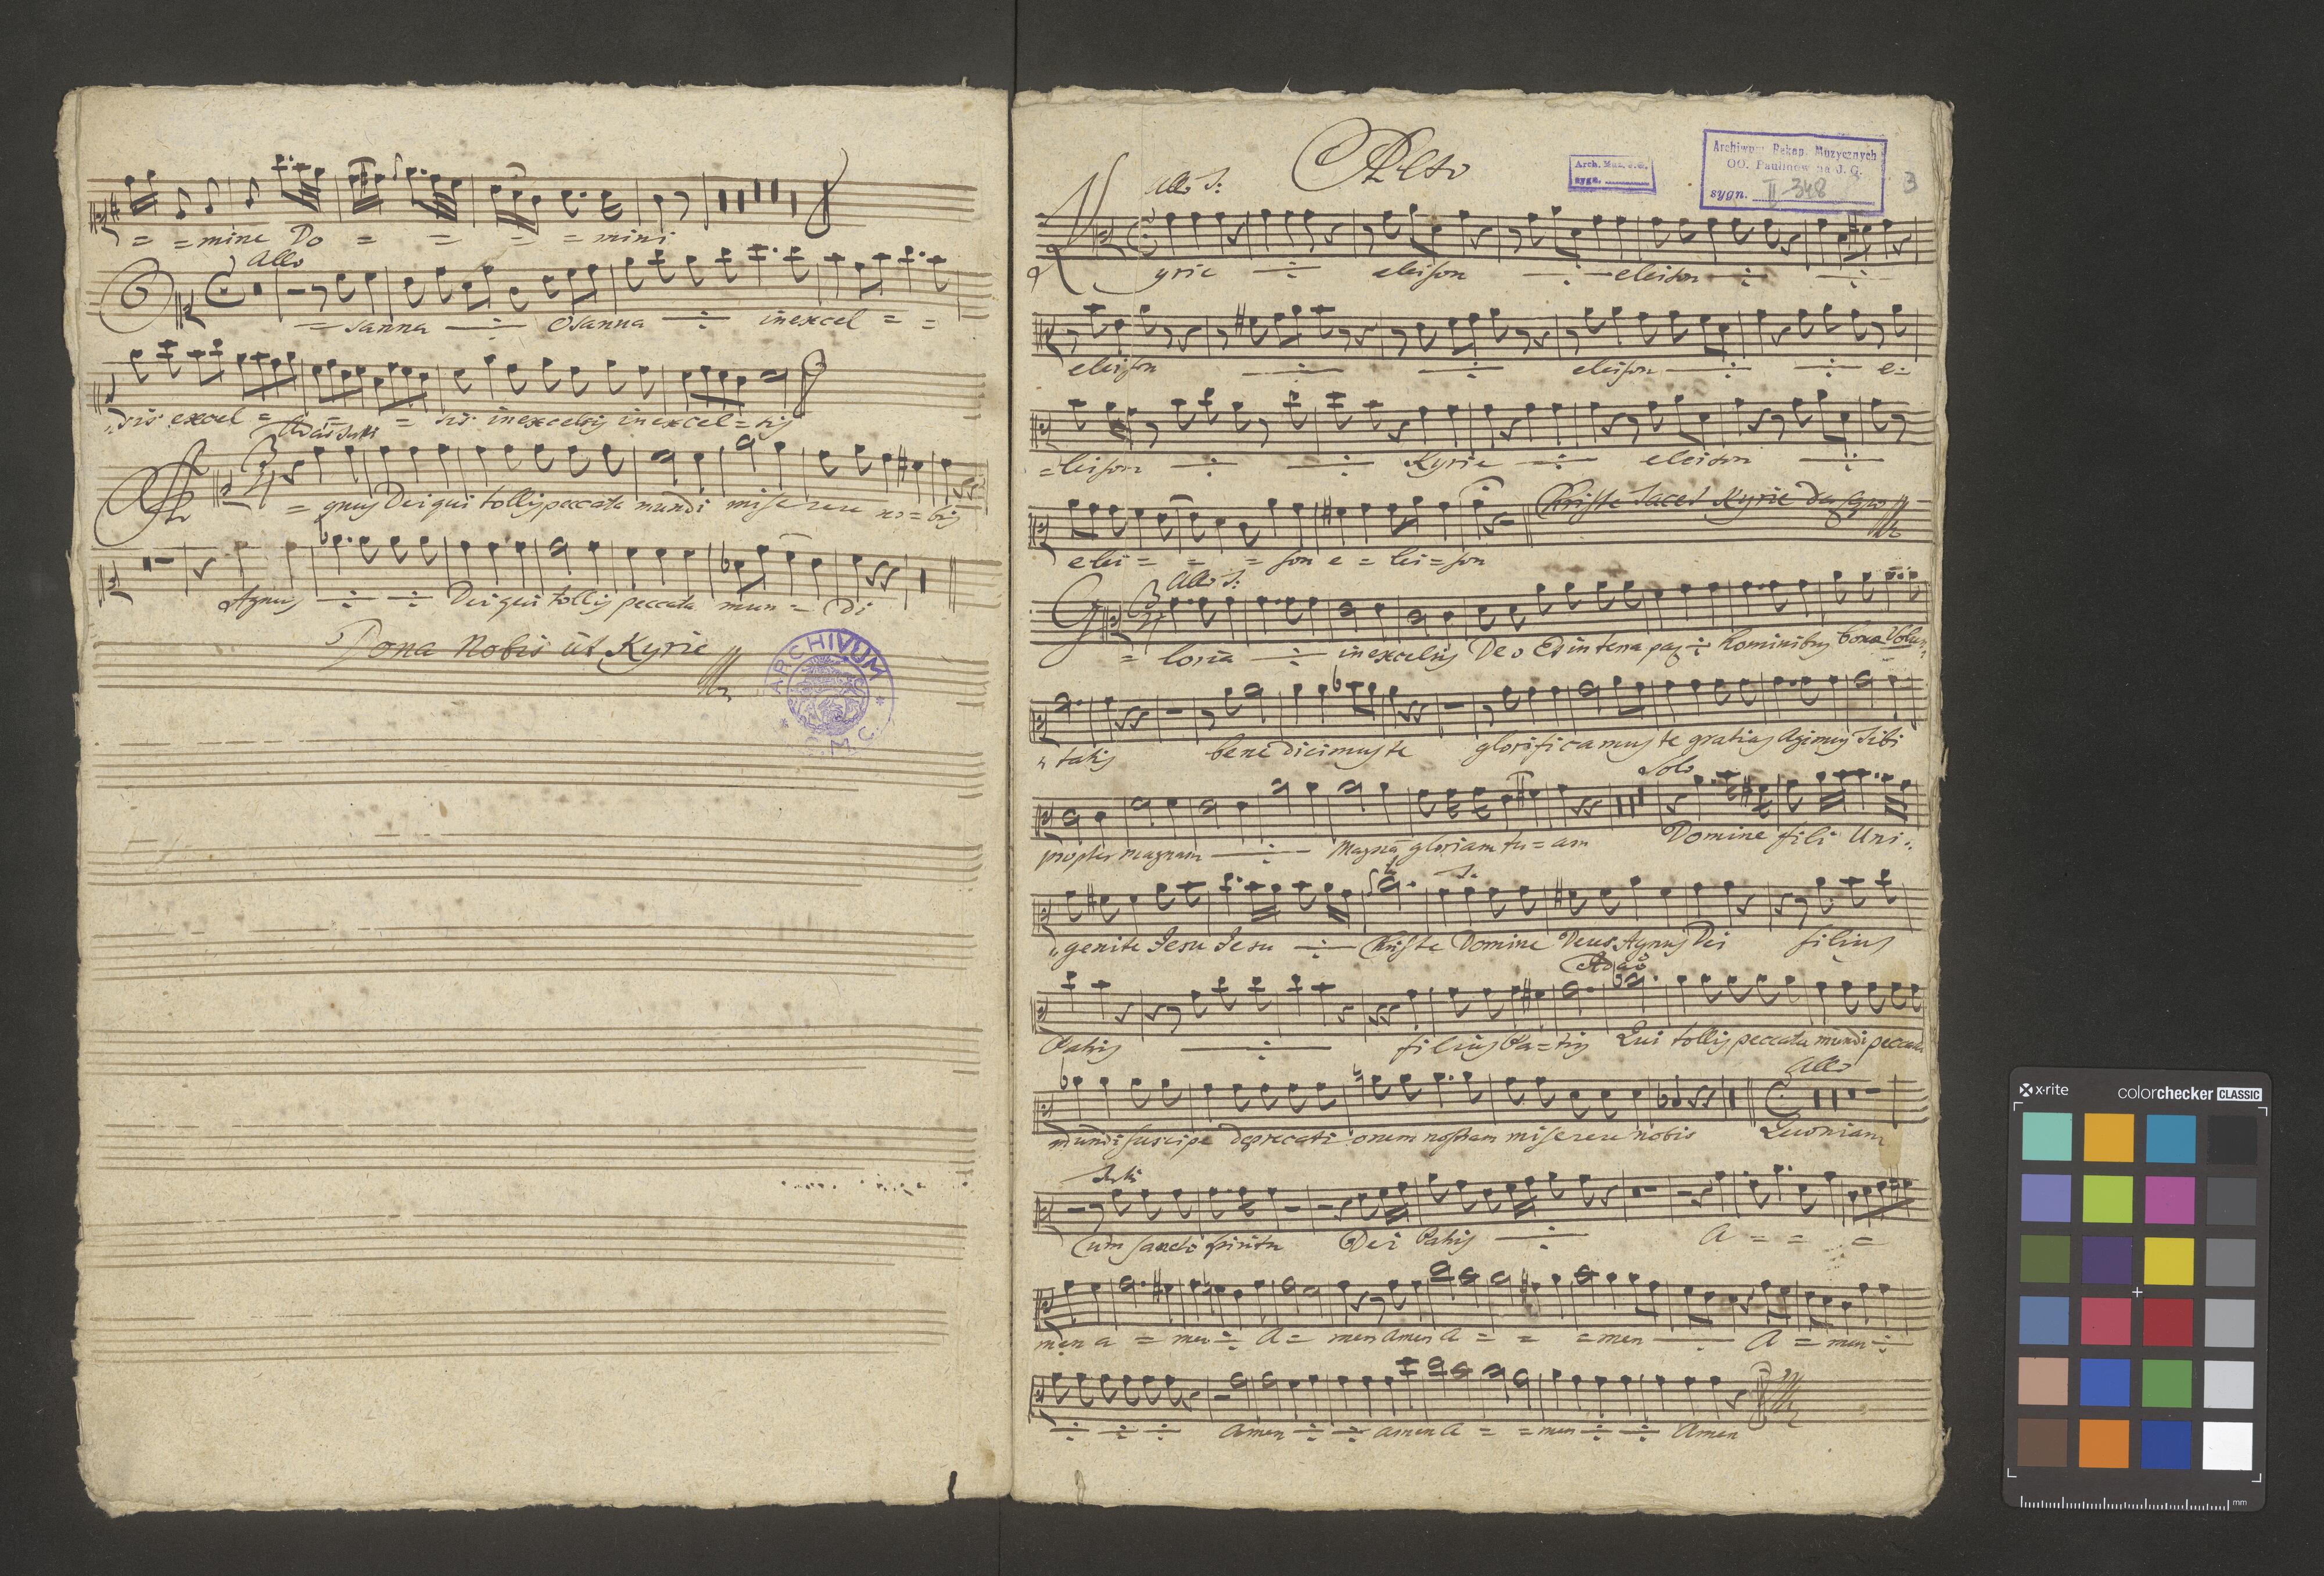 = = mine Do = = = = mini
Allo
O = sanna ÷ Osanna ÷ in excel = =
sis excel = = = sis in excelsis in excel = sis
Tutti
A = gnus Dei qui tollis peccata mundi miserere no = bis
Agnus ÷ ÷ Dei qui tollis peccata mun = di
Dona Nobis ut Kyrie
ARCHIVUM
Alto
Arch. Muz. J.G.
sygn.
Archiwum Rękop. Muzycznych
OO. Paulinów na J. G.
sygn. II-348
3
Allo
Kyrie ÷ eleison ÷ eleison ÷ ÷
eleison ÷ ÷ eleison ÷ ÷ e=
=leison ÷ ÷ Kyrie ÷ eleison ÷
elei = = = son e = lei = son Christe tacet Kyrie
Allo
G = loria ÷ in excelsis Deo Et in terra pax ÷ hominibus bona Volun
tatis benedicimus te glorificamus te gratias Agimus Tibi
Solo
propter magnam ÷ Magna gloriam tu = am Domine fili Uni
genite Jesu Jesu ÷ Christe Domine Deus Agnus Dei filius
Adao
Patris ÷ filius Pa = tris Qui tollis peccata mundi peccata
Allo
mundi suscipe deprecationem nostram miserere nobis Quoniam
Tutti
Cum sancto spiritu Dei Patris ÷ A = = =
men a = men ÷ A = men amen A = = = men ÷ A = men ÷
÷ ÷ ÷ Amen ÷ ÷ amen A = = men ÷ ÷ Amen
x-rite colorchecker CLASSIC
mm